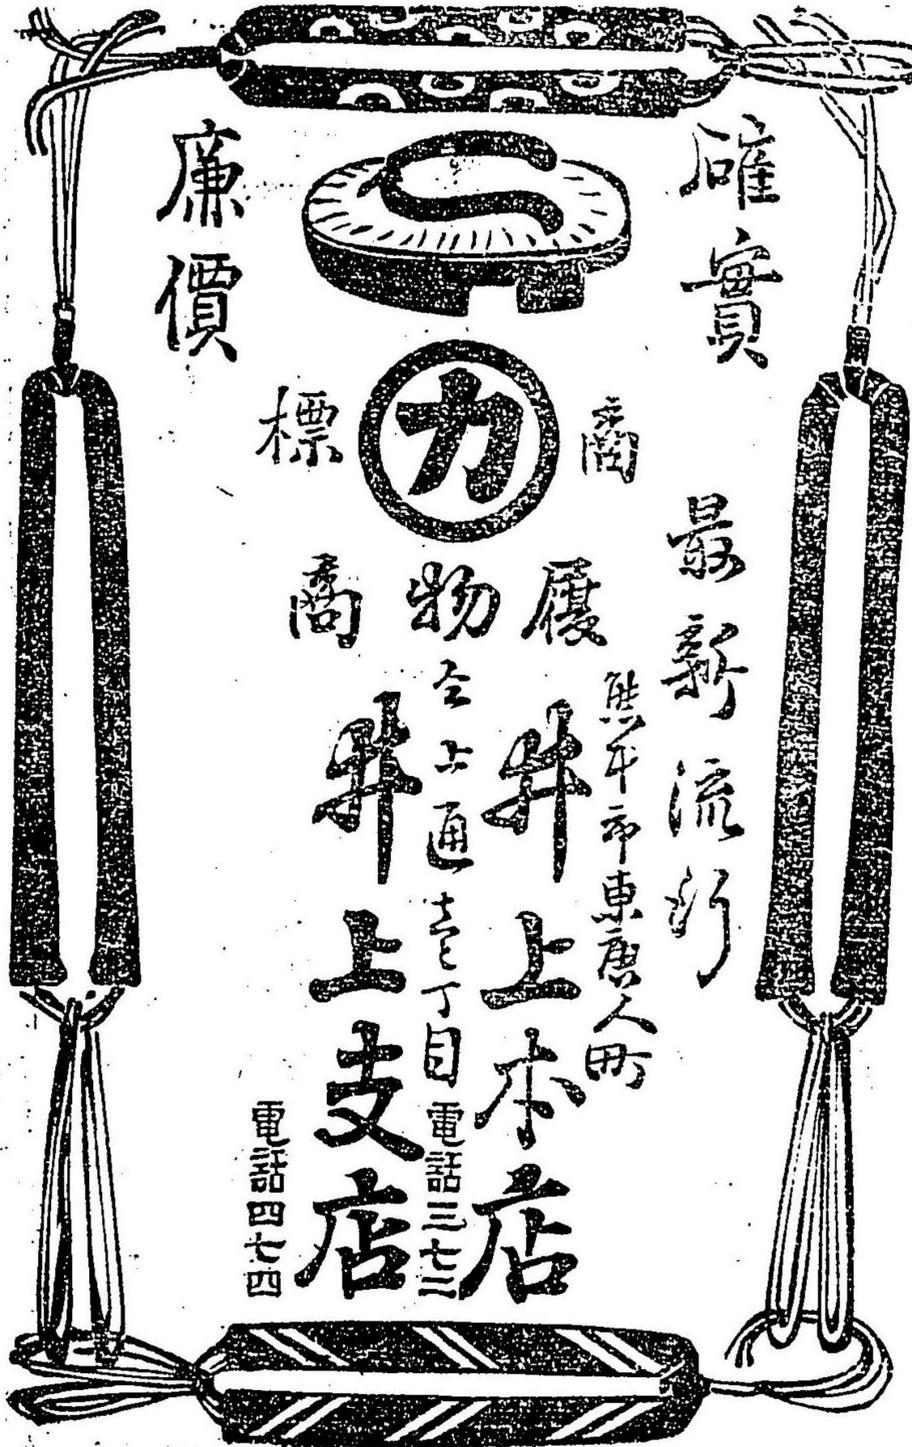 確實
廉價
商標
力
履物商
最新流行
熊本市東唐人町
井上本店
電話三七二
仝上通壱丁目
井上支店
電話四七四